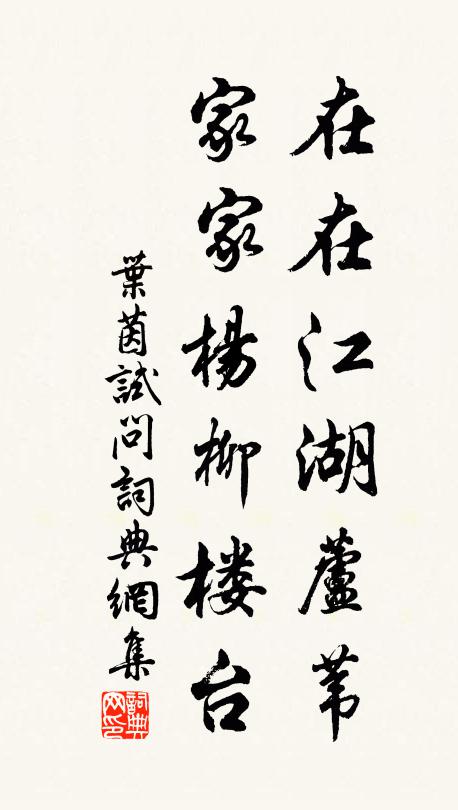 在在江湖蘆苇
家家楊柳楼台
葉茵試問詞典網集
詞典
网印